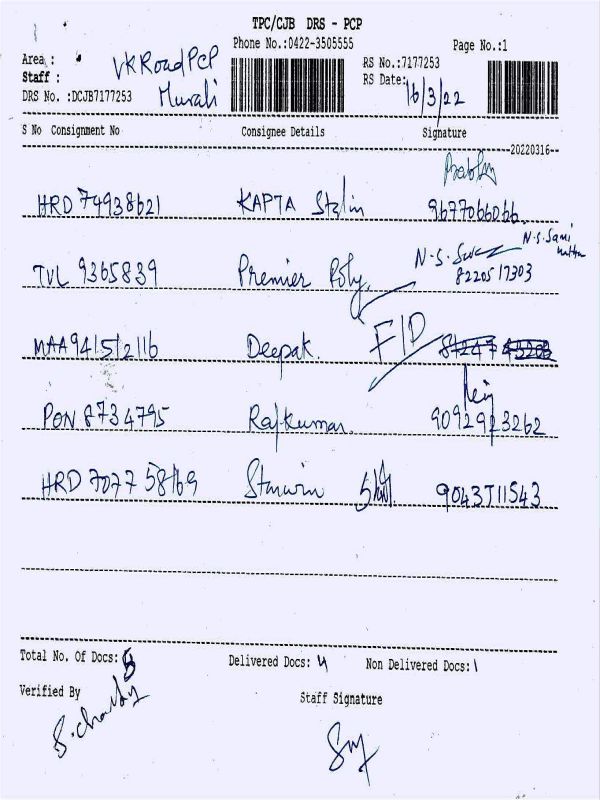 TPC/CJB DRS - PCP
Phone No.:0422-3505555 Page No.:1
Area : VKRoadPCP RS No.:7177253
Staff : Murali RS Date: 16/3/22
DRS No. :DCJB7177253
S No Consignment No Consignee Details Signature
20220316
HRD 74938621 KAPTA Stalin 9677066066
TVL 9365839 Premier Poly. N.S. 8220517303
N.S. Sami
MAA941512116 Deepak. F/D
PON 8734795 Rajkumar. 9092923262
HRD 707758169 9043711543
Total No. Of Docs: Delivered Docs: 4 Non Delivered Docs: 1
Verified By Staff Signature